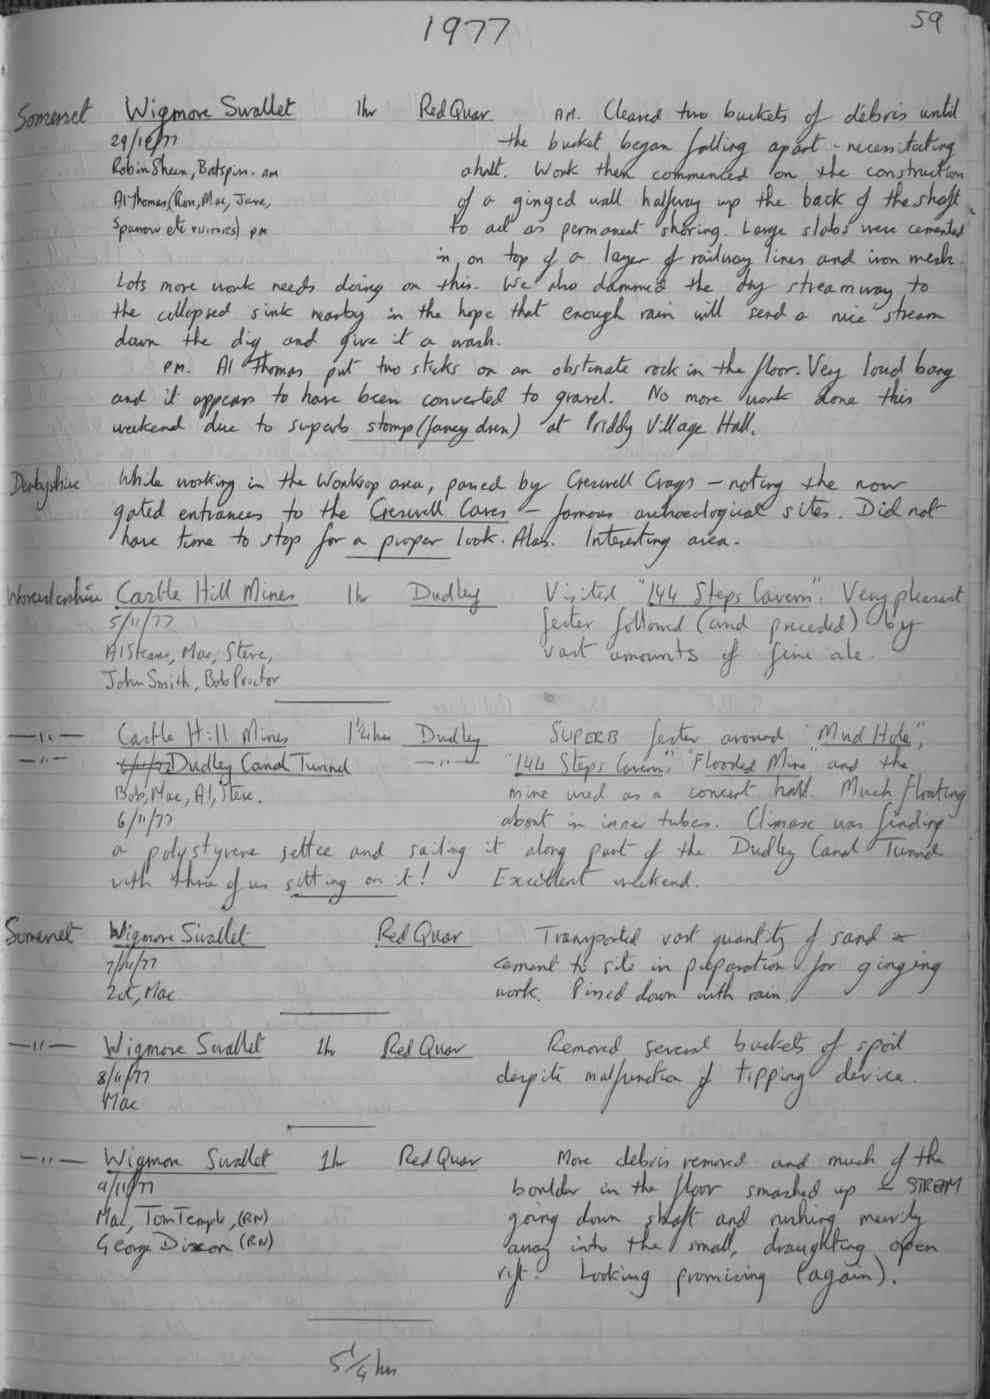 1977
59
Somerset Wigmore Swallet 1hr Red Quar Am. Cleared two buckets of débris until
29/10/77 the bucket began falling apart - necessitating
Robin Sheen, Batspiss. am a halt. Work then commenced on the construction
Al Thomas, (Ron, Mac, Jane, of a ginged wall halfway up the back of the shaft
Sparrow etc visitors) pm to act as permanent shoring. Large slabs were cemented
in on top of a layer of railway lines and iron mesh.
Lots more work needs doing on this. We also dammed the dry streamway to
the collapsed sink nearby in the hope that enough rain will send a nice stream
down the dig and give it a wash.
pm. Al Thomas put two sticks on an obstinate rock in the floor. Very loud bang
and it appears to have been converted to gravel. No more work done this
weekend due to superb stomp (fancy dress) at Priddy Village Hall.
Derbyshire While working in the Worksop area, passed by Creswell Crags - noting the now
gated entrances to the Creswell Caves - famous archaeological sites. Did not
have time to stop for a proper look. Alas. Interesting area.
Worcestershire Castle Hill Mines 1hr Dudley Visited "144 Steps Cavern". Very pleasant
5/11/77 fester followed (and preceded) by
Al Steans, Mac, Steve, vast amounts of fine ale.
John Smith, Bob Proctor
—"— Castle Hill Mines 1¼hrs Dudley SUPERB fester around "Mud Hole",
—"— Dudley Canal Tunnel —"— "144 Steps Cavern", "Flooded Mine" and the
Bob, Mac, Al, Steve. mine used as a concert hall. Much floating
6/11/77 about in inner tubes. Climax was finding
a polystyrene settee and sailing it along part of the Dudley Canal Tunnel
with three of us sitting on it! Excellent weekend.
Somerset Wigmore Swallet Red Quar Transported vast quantity of sand &
7/11/77 cement to site in preparation for ginging
Zot, Mac work. Pissed down with rain.
—"— Wigmore Swallet 1hr Red Quar Removed several buckets of spoil
8/11/77 despite malfunction of tipping device.
Mac
—"— Wigmore Swallet 1hr Red Quar More debris removed and much of the
9/11/77 boulder in the floor smashed up - STREAM
Mac, Tom Temple, (RN) going down shaft and rushing merrily
George Dixon (RN) away into the small, draughting open
rift. Looking promising (again).
5¼ hrs